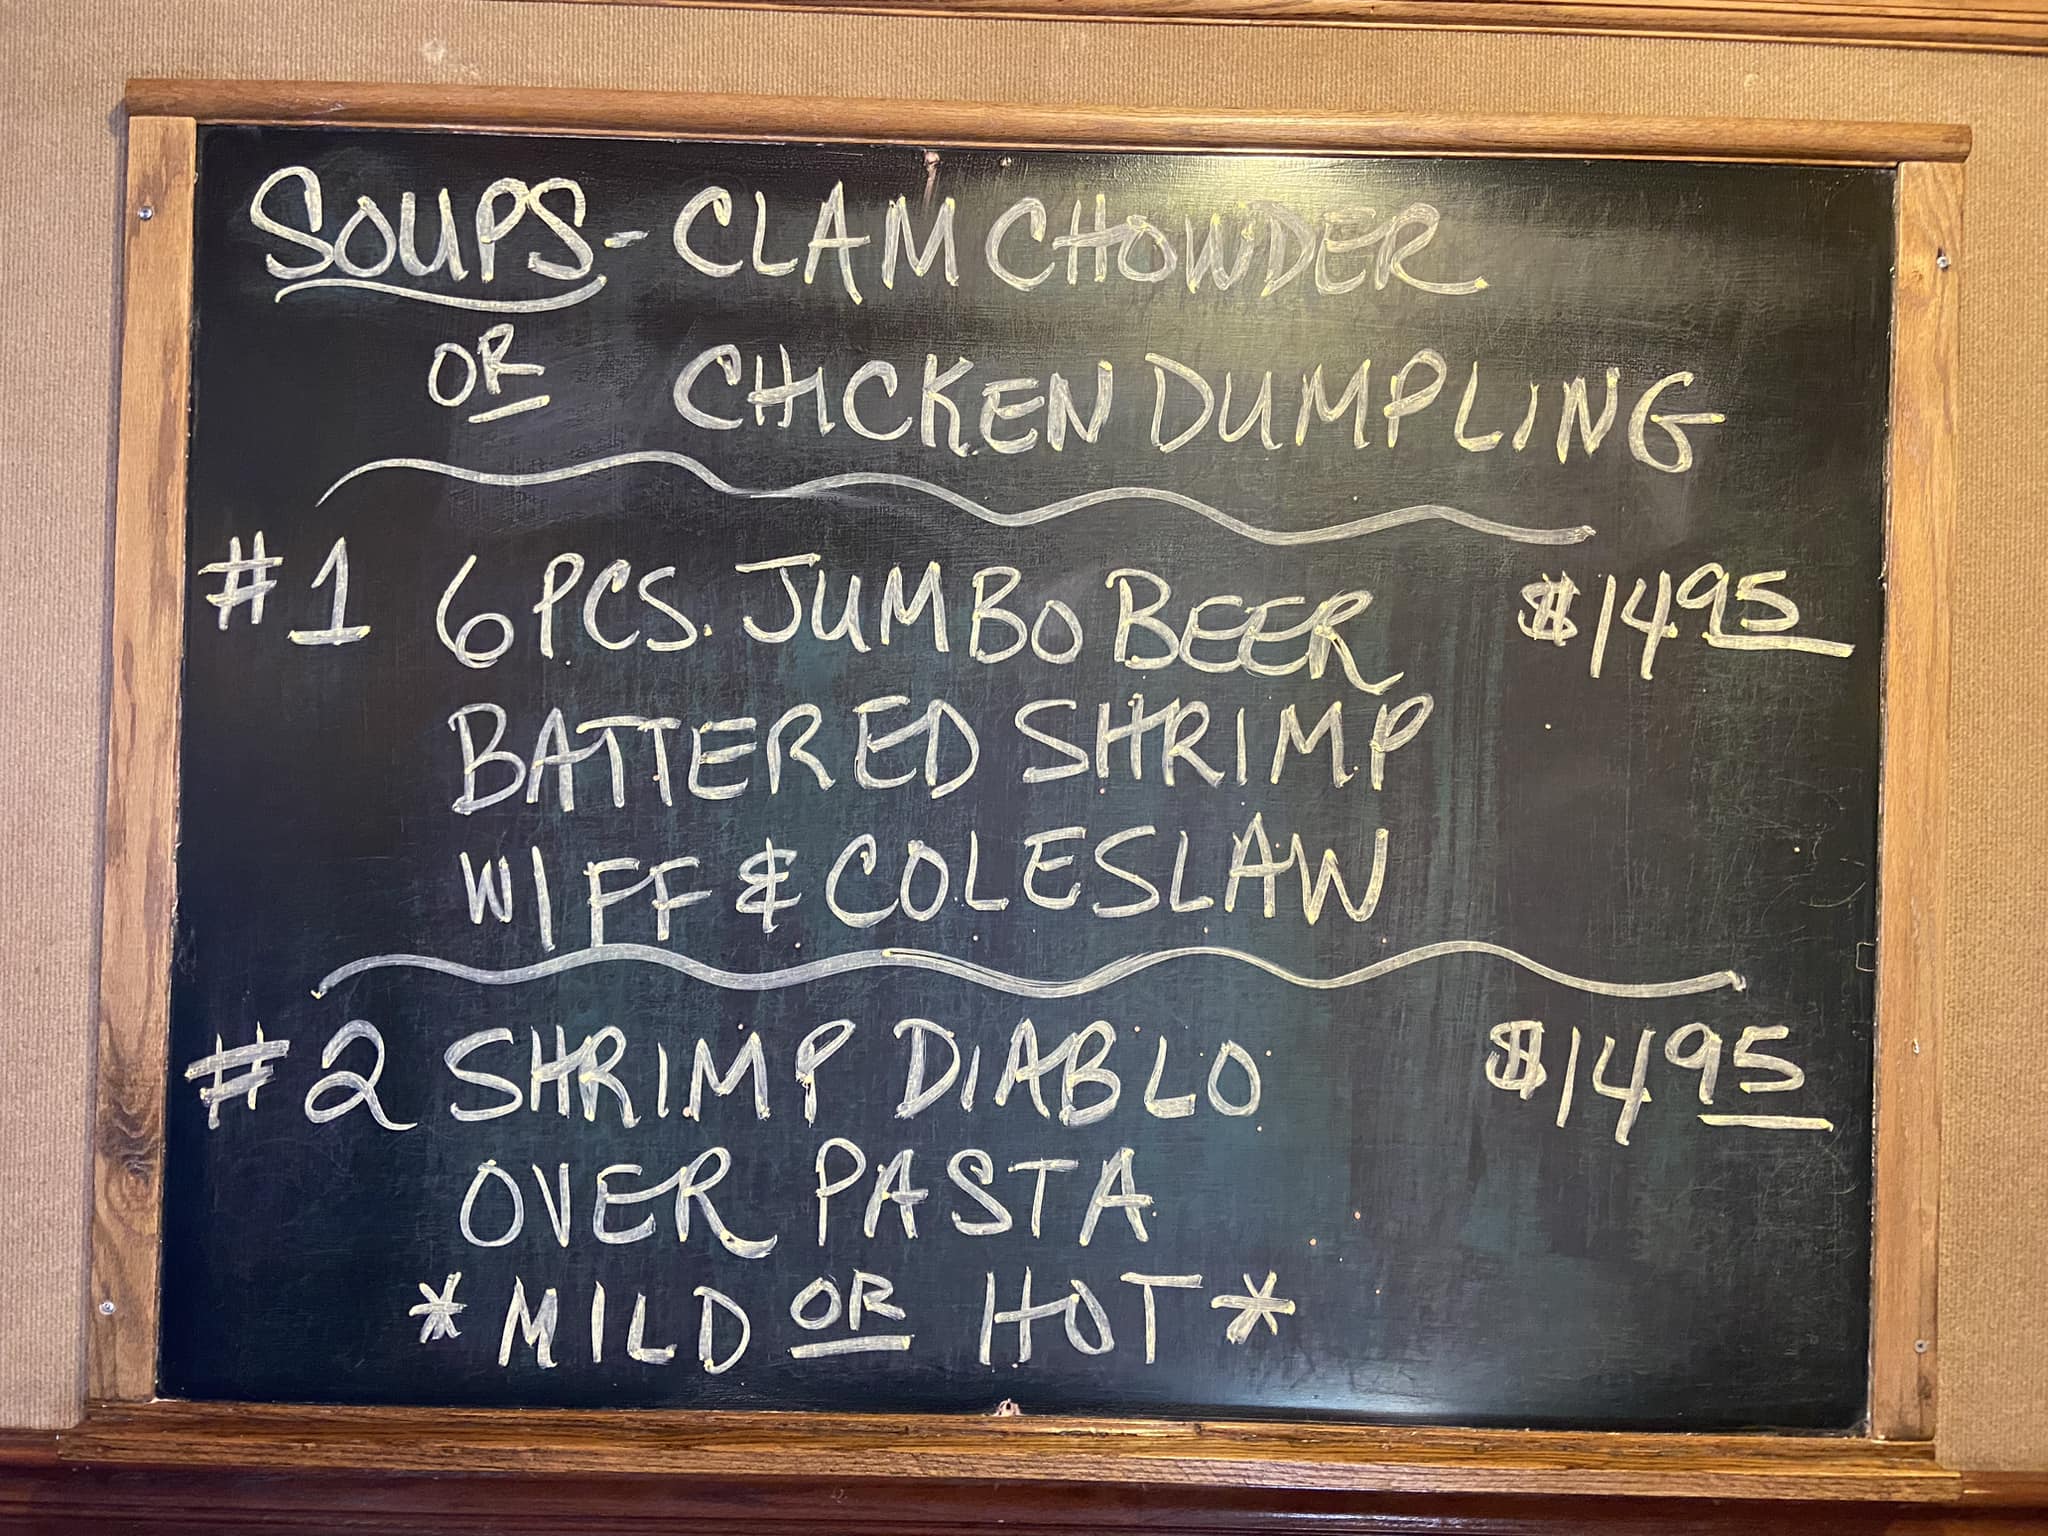 SOUPS - CLAM CHOWDER
OR CHICKEN DUMPLING
#1 6 PCS. JUMBO BEER $14.95
BATTERED SHRIMP
W/ FF & COLESLAW
#2 SHRIMP DIABLO $14.95
OVER PASTA
*MILD OR HOT*